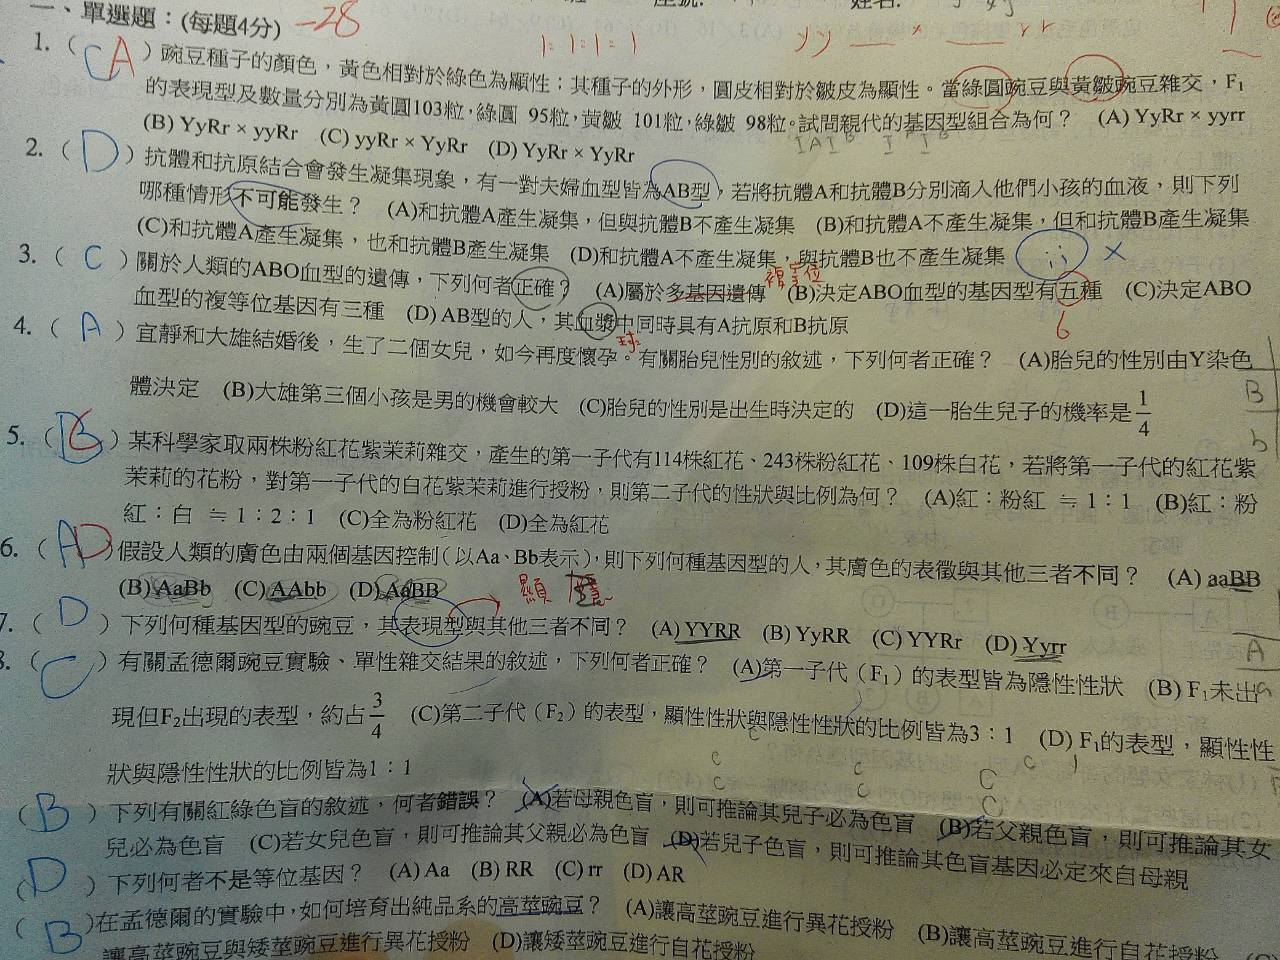 一、單選題：(每題4分) -28
1:1:1:1 yy × rr
1. ( C A ) 豌豆種子的顏色，黃色相對於綠色為顯性；其種子的外形，圓皮相對於皺皮為顯性。當綠圓豌豆與黃皺豌豆雜交，F₁
的表現型及數量分別為黃圓103粒，綠圓 95粒，黃皺 101粒，綠皺 98粒。試問親代的基因型組合為何？ (A) YyRr × yyrr
(B) YyRr × yyRr (C) yyRr × YyRr (D) YyRr × YyRr
2. ( D ) 抗體和抗原結合會發生凝集現象，有一對夫婦血型皆為AB型，若將抗體A和抗體B分別滴入他們小孩的血液，則下列
哪種情形不可能發生？ (A)和抗體A產生凝集，但與抗體B不產生凝集 (B)和抗體A不產生凝集，但和抗體B產生凝集
(C)和抗體A產生凝集，也和抗體B產生凝集 (D)和抗體A不產生凝集，與抗體B也不產生凝集 ii ×
3. ( C ) 關於人類的ABO血型的遺傳，下列何者正確？ (A)屬於多基因遺傳 (B)決定ABO血型的基因型有五種 (C)決定ABO
6
血型的複等位基因有三種 (D) AB型的人，其血漿中同時具有A抗原和B抗原
球
4. ( A ) 宜靜和大雄結婚後，生了二個女兒，如今再度懷孕。有關胎兒性別的敘述，下列何者正確？ (A)胎兒的性別由Y染色
體決定 (B)大雄第三個小孩是男的機會較大 (C)胎兒的性別是出生時決定的 (D)這一胎生兒子的機率是1/4
B
b
5. ( B C ) 某科學家取兩株粉紅花紫茉莉雜交，產生的第一子代有114株紅花、243株粉紅花、109株白花，若將第一子代的紅花紫
茉莉的花粉，對第一子代的白花紫茉莉進行授粉，則第二子代的性狀與比例為何？ (A)紅：粉紅 ≒ 1：1 (B)紅：粉
紅：白 ≒ 1：2：1 (C)全為粉紅花 (D)全為紅花
6. ( A D ) 假設人類的膚色由兩個基因控制(以Aa、Bb表示)，則下列何種基因型的人，其膚色的表徵與其他三者不同？ (A) aaBB
(B) AaBb (C) AAbb (D) AaBB 顯
7. ( D ) 下列何種基因型的豌豆，其表現型與其他三者不同？ (A) YYRR (B) YyRR (C) YYRr (D) Yyrr
A
a
8. ( C ) 有關孟德爾豌豆實驗、單性雜交結果的敘述，下列何者正確？ (A)第一子代（F₁）的表型皆為隱性性狀 (B) F₁未出
現但F₂出現的表型，約占3/4 (C)第二子代（F₂）的表型，顯性性狀與隱性性狀的比例皆為3：1 (D) F₁的表型，顯性性
狀與隱性性狀的比例皆為1：1
( B ) 下列有關紅綠色盲的敘述，何者錯誤？ (A)若母親色盲，則可推論其兒子必為色盲 (B)若父親色盲，則可推論其女
兒必為色盲 (C)若女兒色盲，則可推論其父親必為色盲 (D)若兒子色盲，則可推論其色盲基因必定來自母親
( D ) 下列何者不是等位基因？ (A) Aa (B) RR (C) rr (D) AR
( B ) 在孟德爾的實驗中，如何培育出純品系的高莖豌豆？ (A)讓高莖豌豆進行異花授粉 (B)讓高莖豌豆進行自花授粉
讓高莖豌豆與矮莖豌豆進行異花授粉 (D)讓矮莖豌豆進行自花授粉